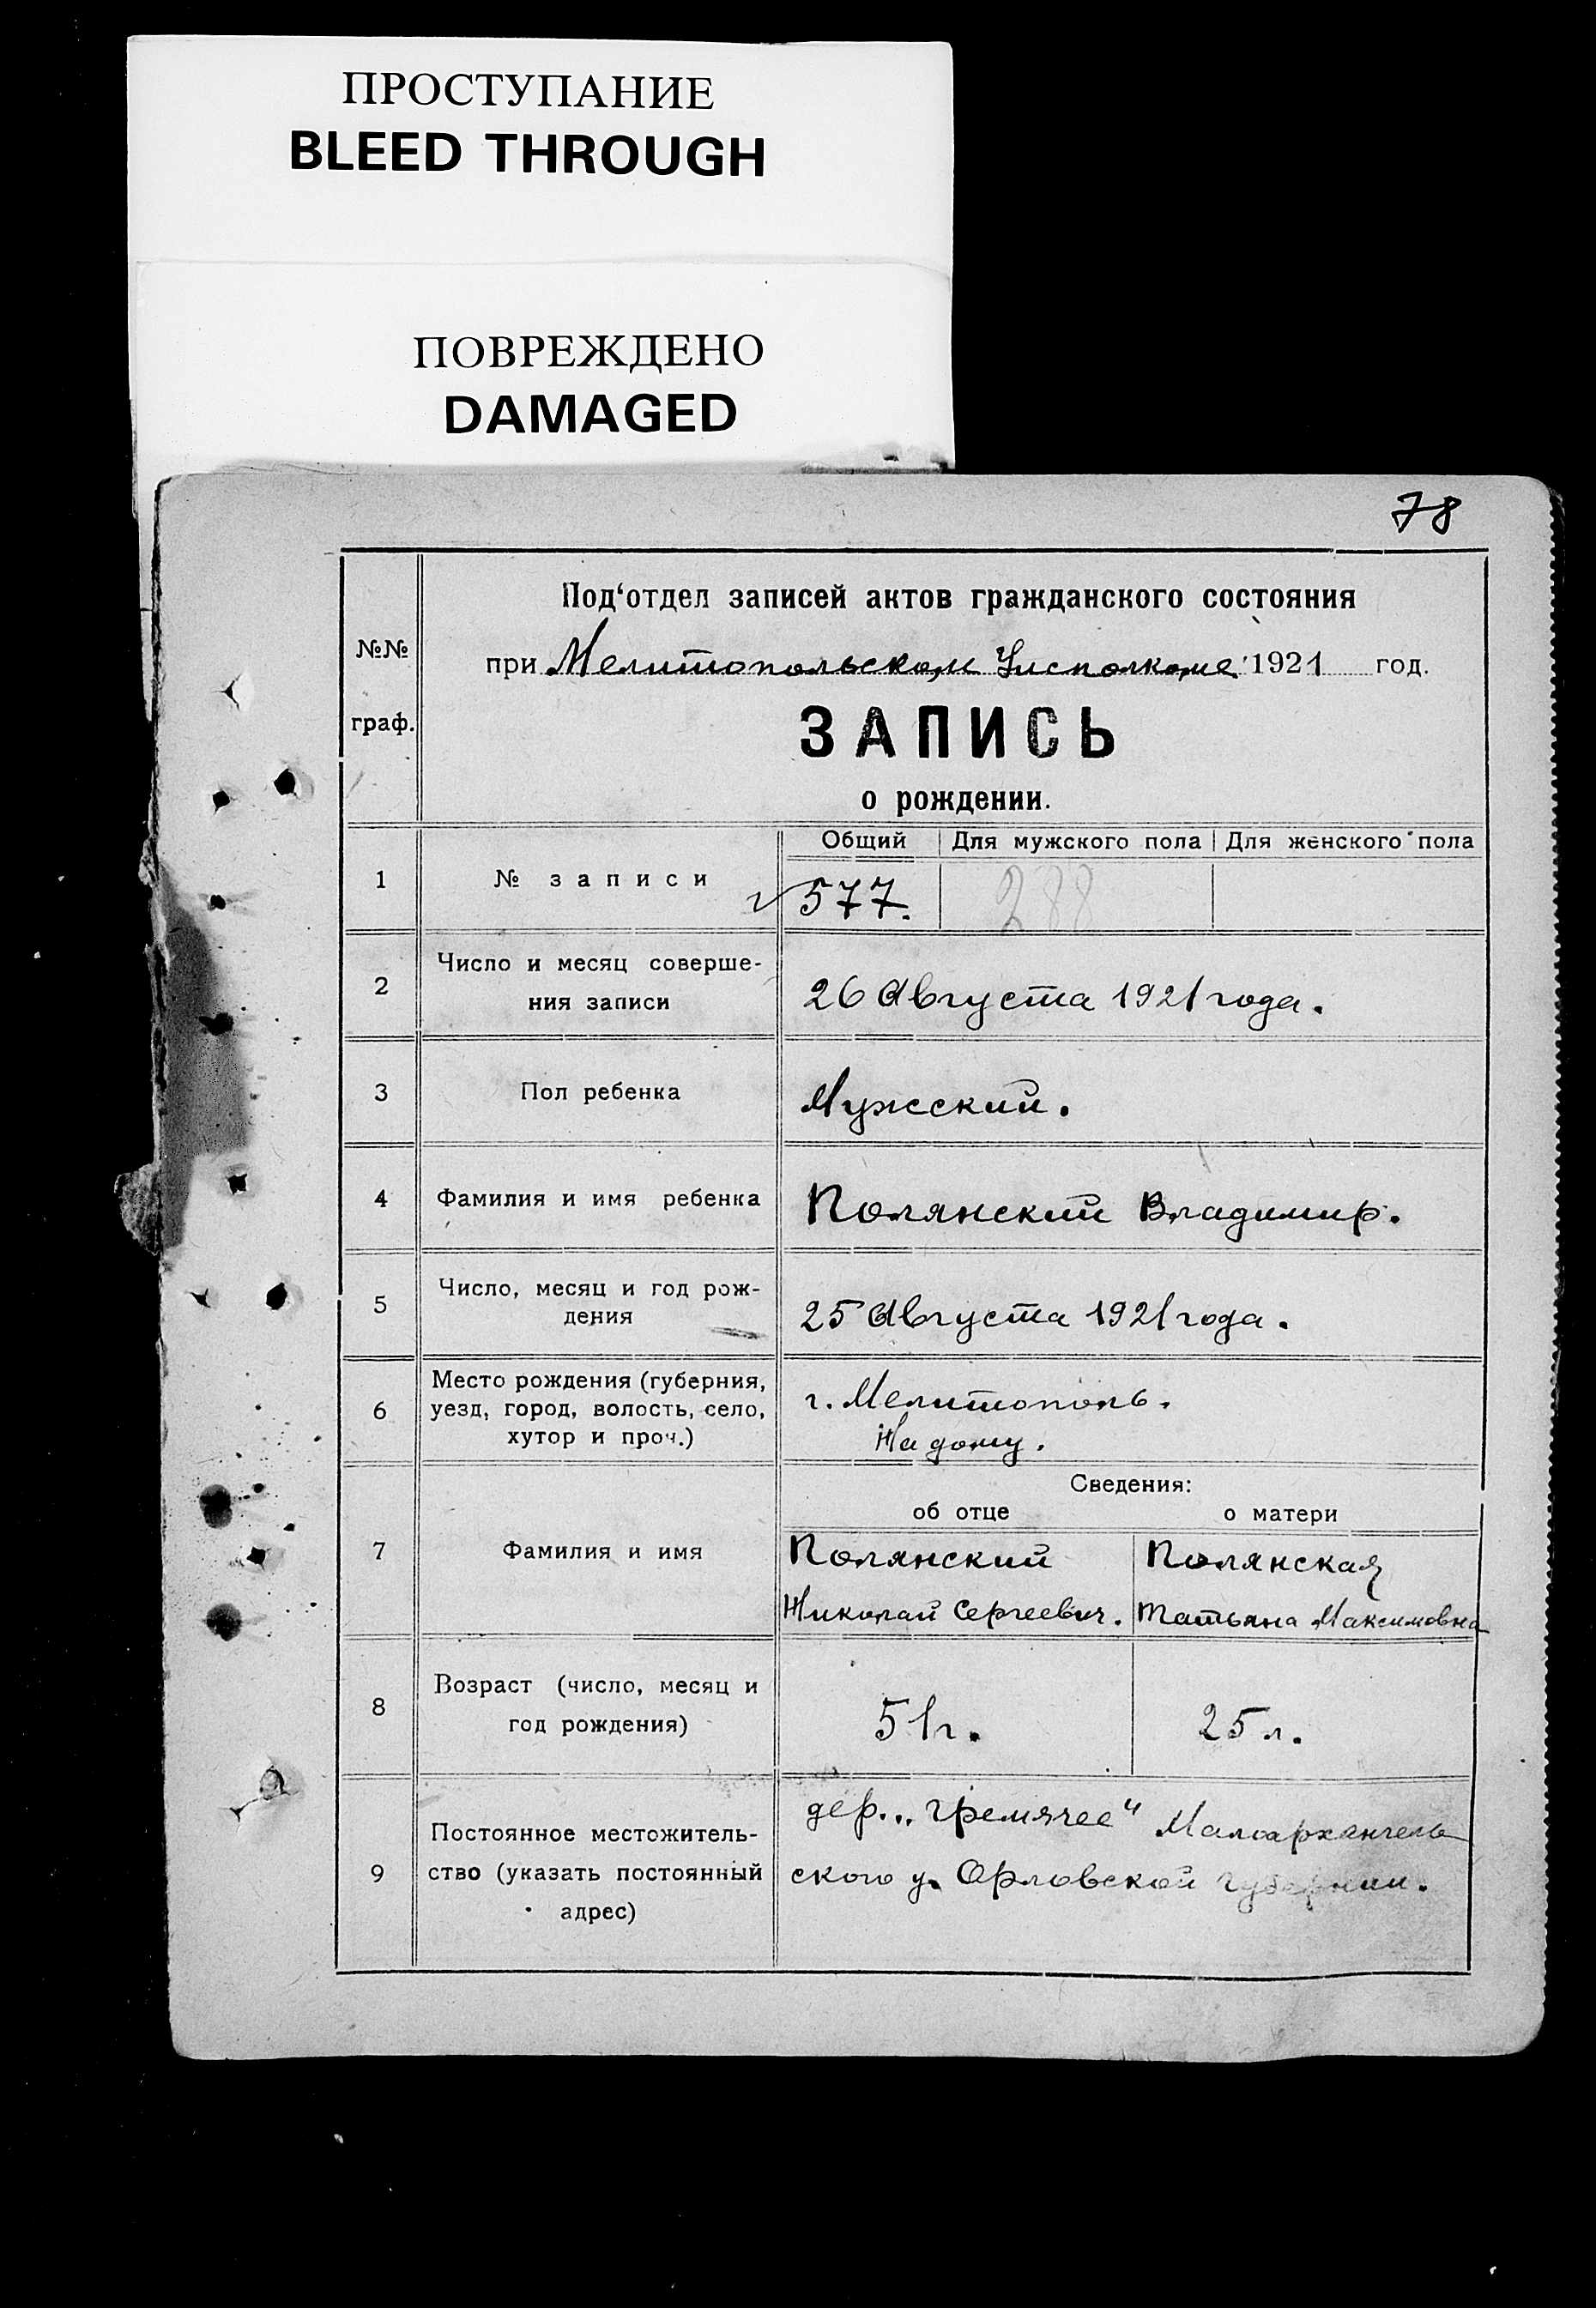 ПРОСТУПАНИЕ
BLEED THROUGH
ПОВРЕЖДЕНО
DAMAGED
78
№№
граф.
Под‘отдел записей актов гражданского состояния
при Мелитопольском Уисполкоме 1921 год.
ЗАПИСЬ
о рождении.
Общий Для мужского пола Для женского пола
1 № записи 577. 288
2 Число и месяц соверше-
ния записи
26 Августа 1921 года.
3 Пол ребенка Мужеский.
4 Фамилия и имя ребенка Полянский Владимир.
5 Число, месяц и год рож-
дения
25 Августа 1921 года.
6 Место рождения (губерния,
уезд, город, волость, село,
хутор и проч.)
г. Мелитополь.
На дому.
Сведения:
об отце о матери
7 Фамилия и имя
Полянский Полянская
Николай Сергеевич. Татьяна Максимовна
8 Возраст (число, месяц и
год рождения)
51 г. 25 л.
9 Постоянное местожитель-
ство (указать постоянный
адрес)
дер. „Гремячее“ Малоархангель
ского у. Орловской губернии.